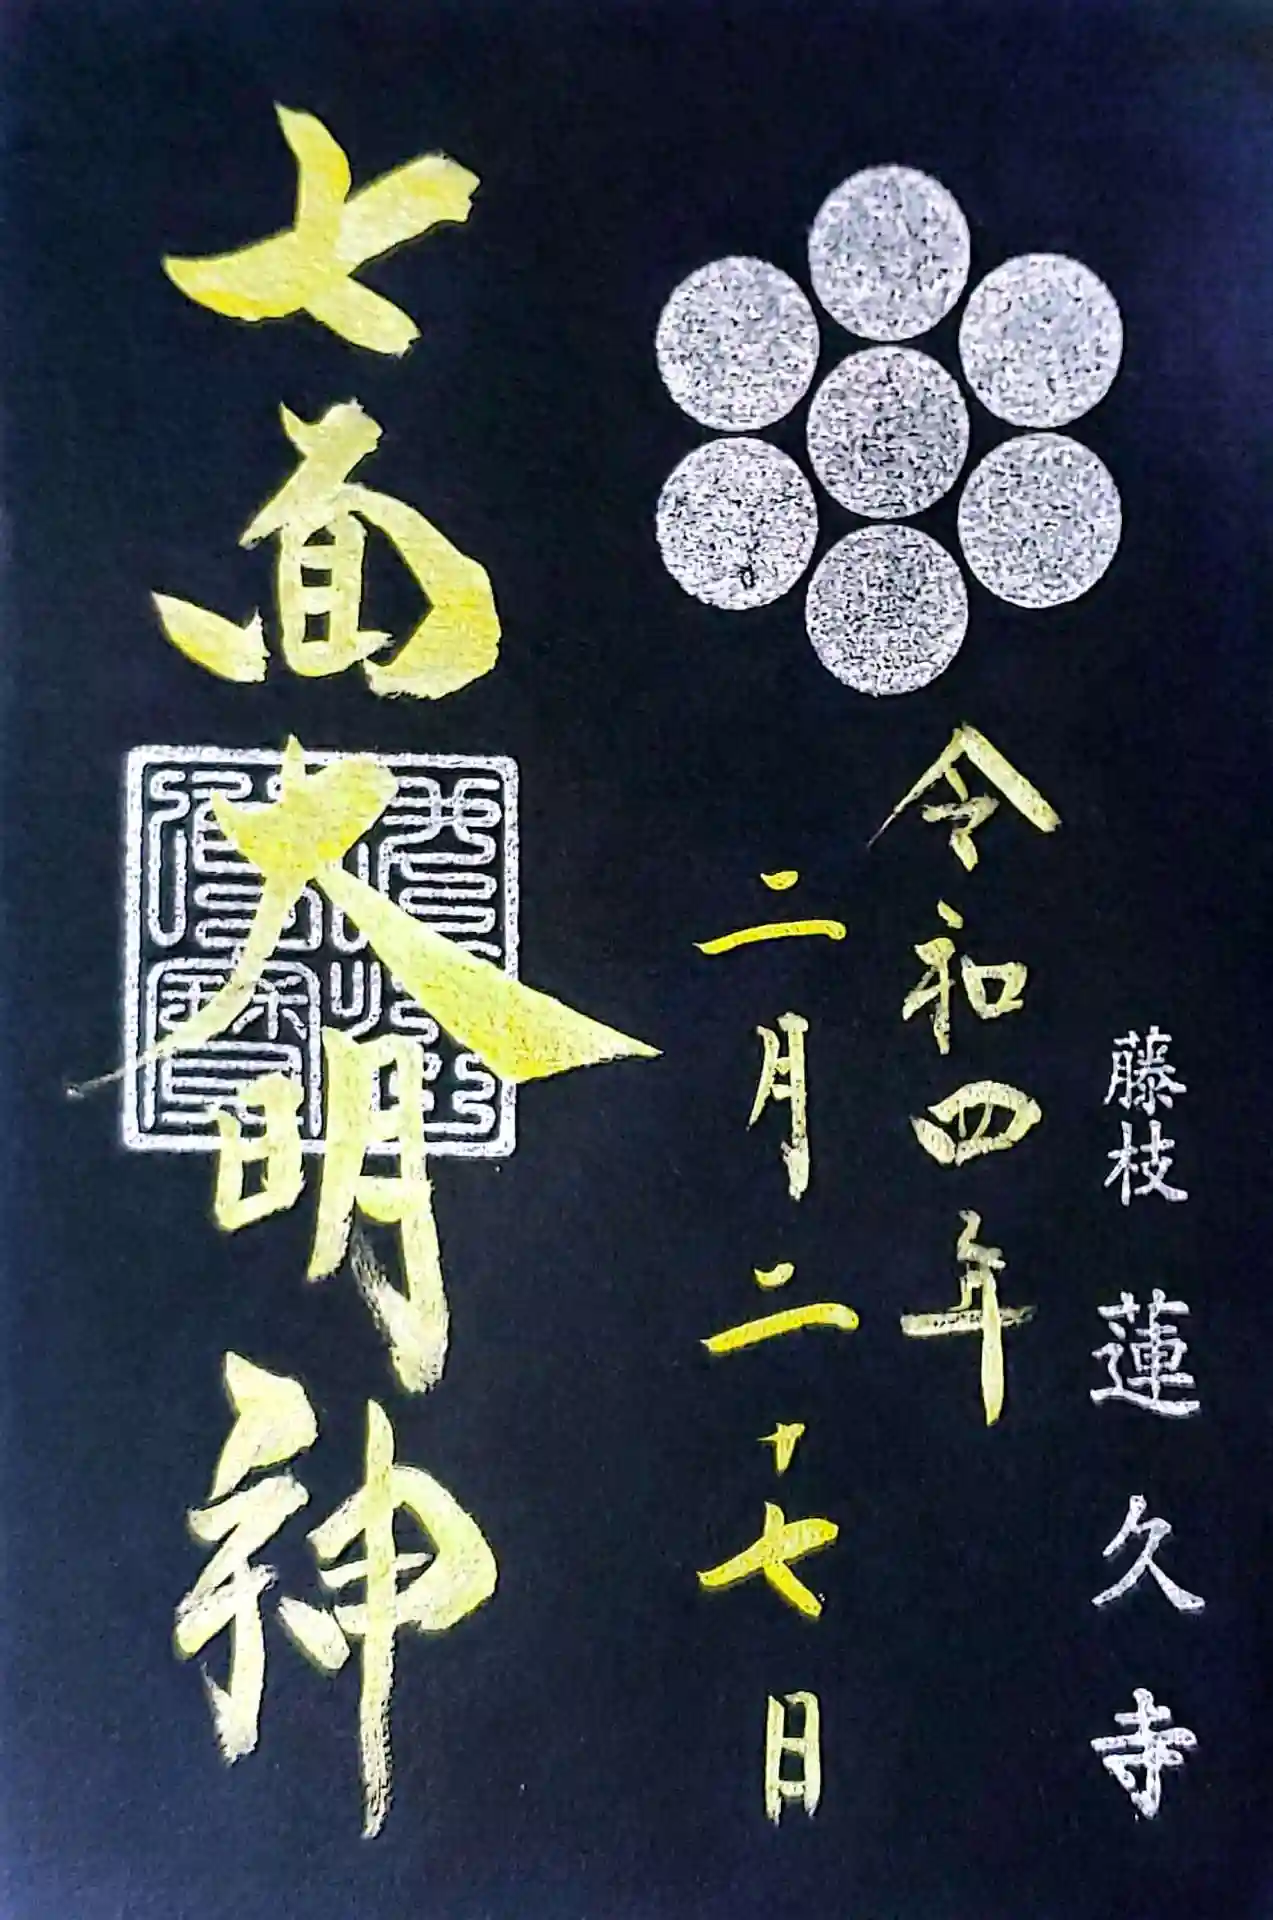 藤枝 蓮久寺
令和四年
二月二十七日
七面大明神